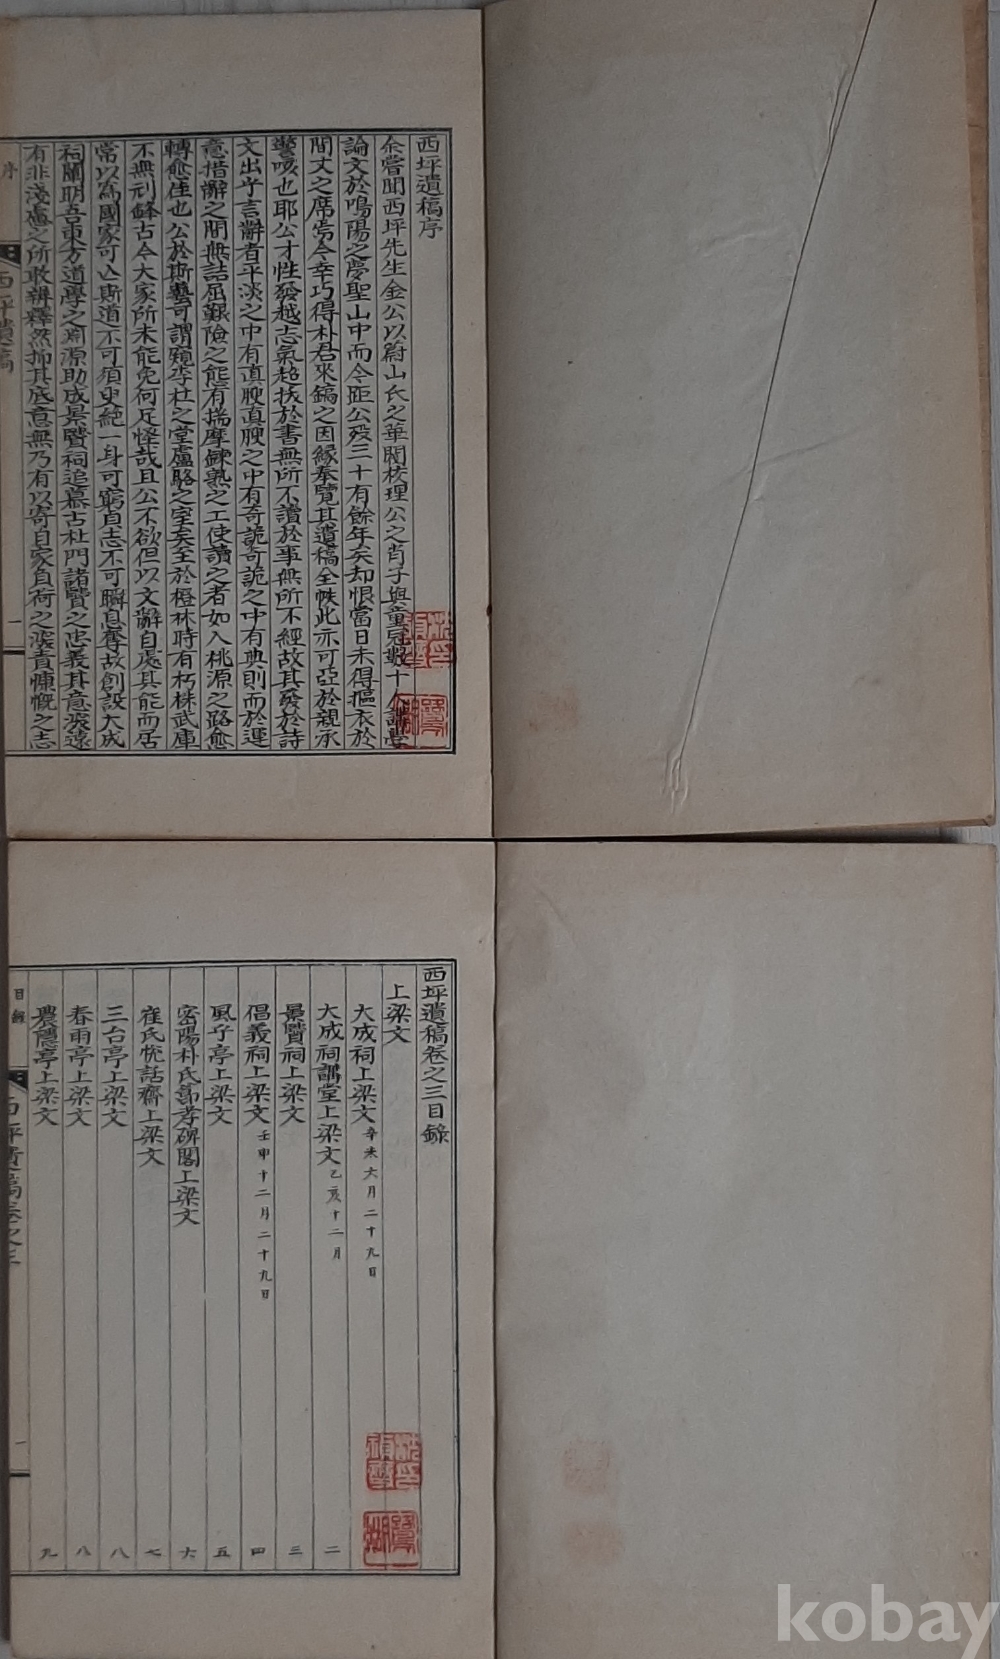 西坪遺稿序
余嘗聞西坪先生金公以蔚山氏之華閥校理公之肖子與童冠數十人講學
論文於鳴陽之夢聖山中而今距公歿三十有餘年矣却恨當日未得摳衣於
間丈之席嵩今幸巧得朴君來鎬之因緣奉覽其遺稿全帙此亦可亞於親承
謦咳也耶公才性發越志氣超扶於書無所不讀於事無所不經故其發於詩
文出乎言辭者平淡之中有眞腴眞腴之中有奇詭奇詭之中有典則而於運
意措辭之間無詰屈艱險之態有揣摩鍊熟之工使讀之者如入桃源之路愈
轉愈佳也公於斯藝可謂窺李杜之堂盧駱之室矣至於橙林時有朽株武庫
不無刓鋒古今大家所未能免何足怪哉且公不欲但以文辭自處其能而居
常以爲國家可亾斯道不可須臾絶一身可窮自志不可瞬息奪故創設大成
祠闡明吾東方道學之淵源助成景賢祠追慕古杜門諸賢之忠義其意深遠
有非淺慮之所敢辨釋然抑其底意無乃有以寄自家負荷之深責慷慨之志
序
西坪遺稿
一
西坪遺稿卷之三目錄
上梁文
大成祠上梁文 辛未六月二十九日
大成祠講堂上梁文 乙亥十二月 二
景賢祠上梁文 三
倡義祠上梁文 壬申十二月二十九日 四
風乎亭上梁文 五
密陽朴氏節孝碑閣上梁文 六
崔氏悅話齋上梁文 七
三台亭上梁文 八
春雨亭上梁文 八
農隱亭上梁文 九
目錄
西坪遺稿卷之三
一
kobay